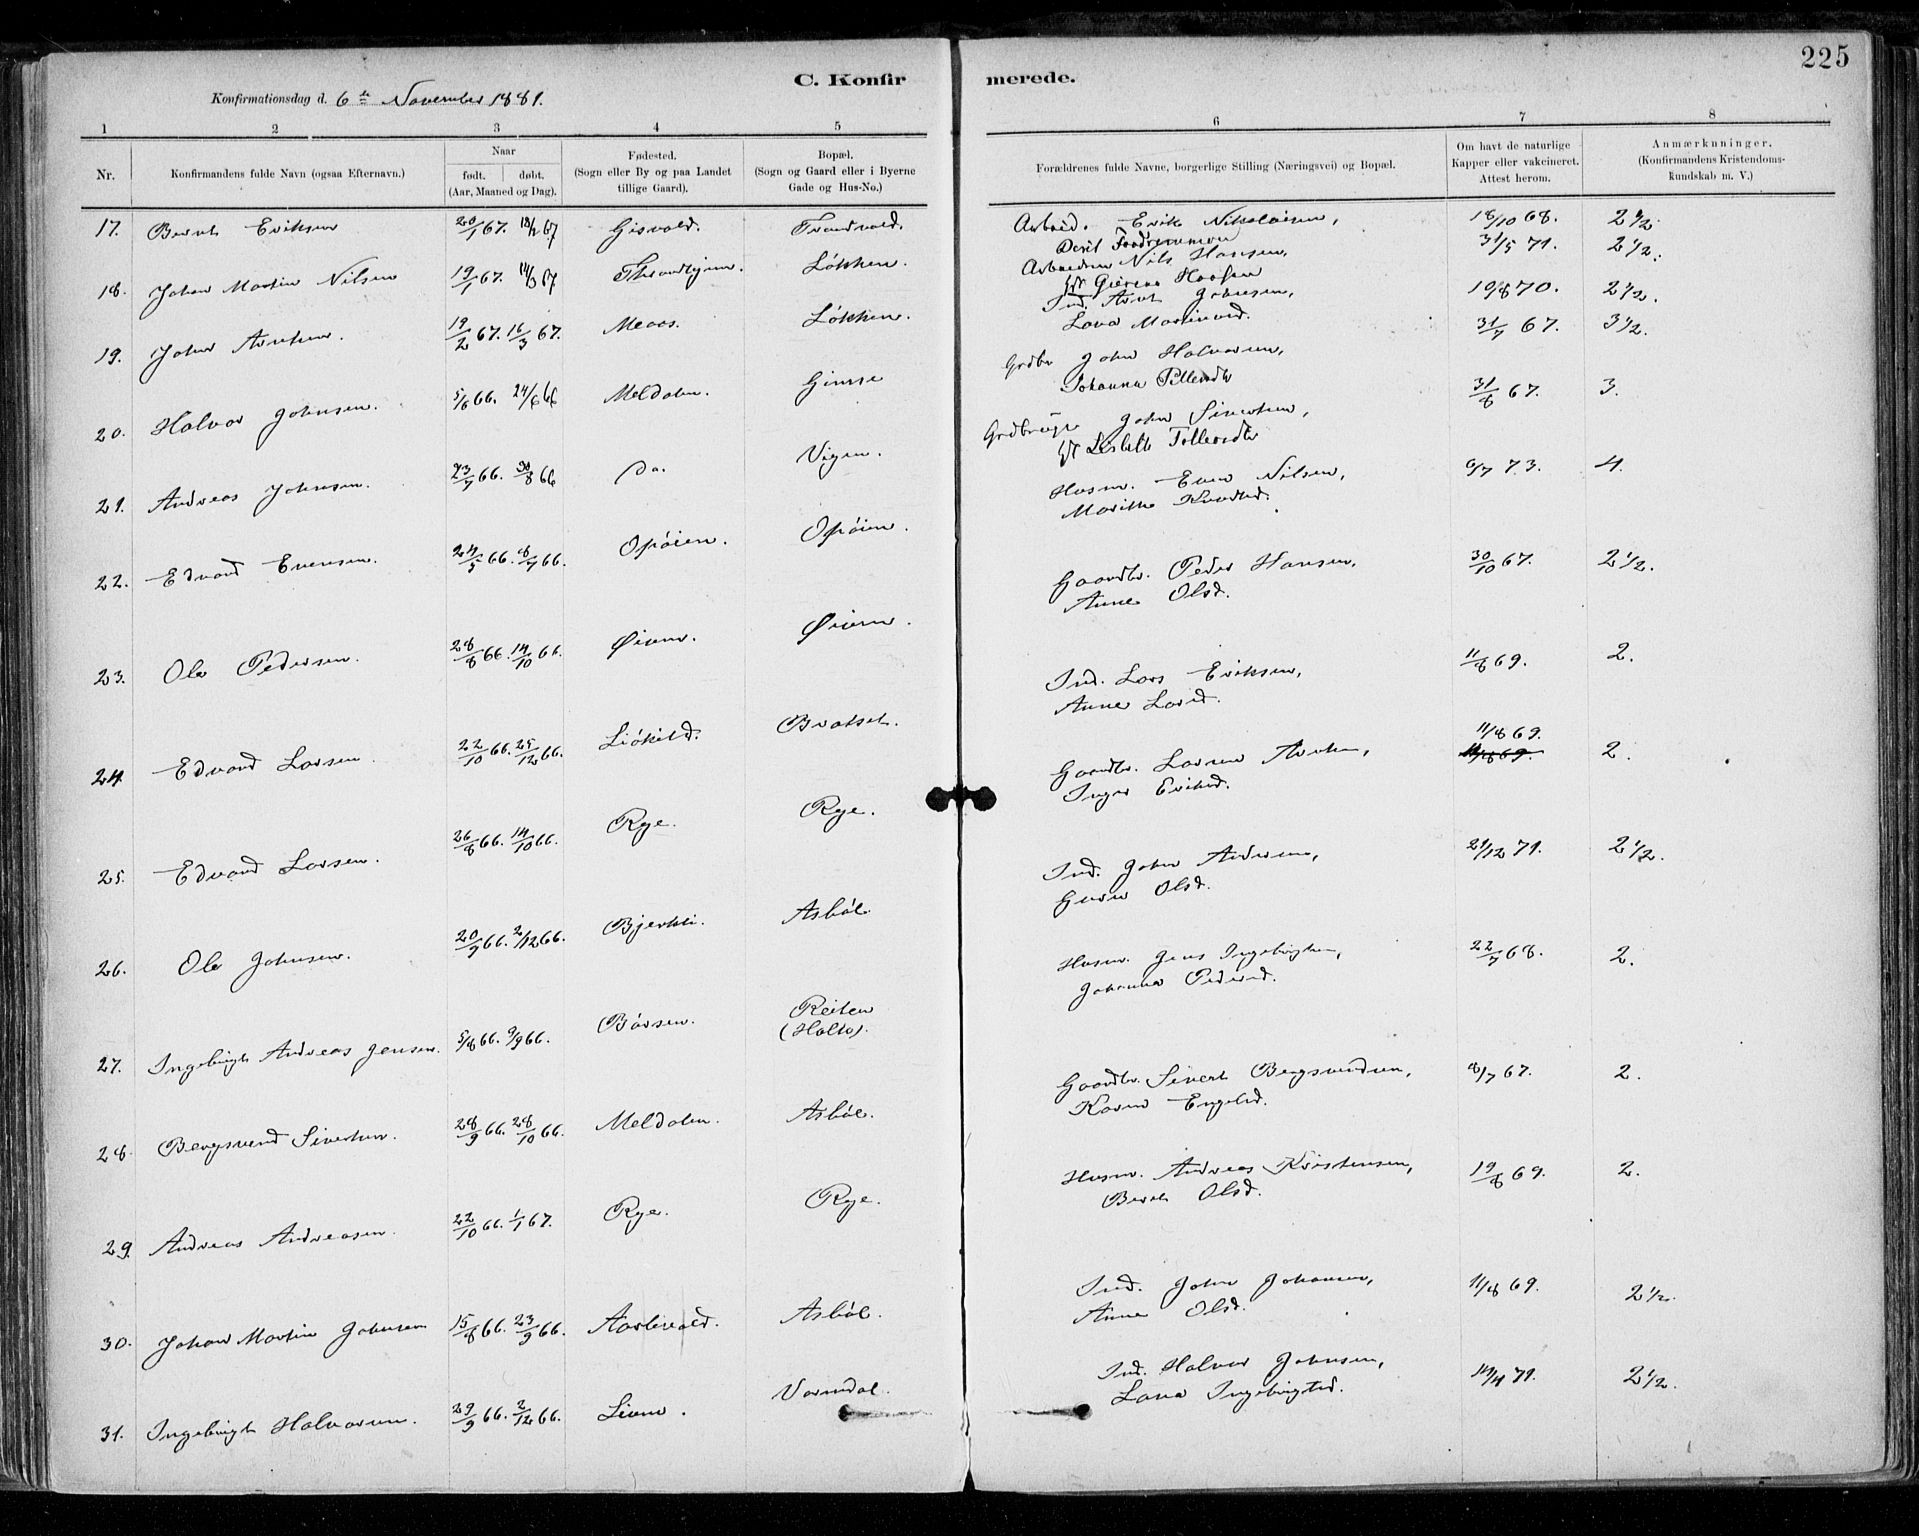 225
C. Konfir merede.
Konfirmationsdag d. 6te November 1881.
1 2 3 4 5 6 7 8
Nr. | Konfirmandens fulde Navn (ogsaa Efternavn.) | Naar født. døbt. (Aar, Maaned og Dag). | Fødested. (Sogn eller By og paa Landet tillige Gaard). | Bopæl. (Sogn og Gaard eller i Byerne Gade og Hus-No.) | Forældrenes fulde Navne, borgerlige Stilling (Næringsvei) og Bopæl. | Om havt de naturlige Kapper eller vakcineret. Attest herom. | Anmærkuninger. (Konfirmandens Kristendoms-kundskab m. V.)
17. Bernt Eriksen 20/1 67. 18/2 67 Gisvold. Trondvold. Arbeid. Erik Nikolaisen, 18/10 68. 2 1/2.
18. Johan Martin Nilsen 19/1 67. 14/3 67 Throndhjem. Løkken. Arbeider Nils Hansen, 31/5 71. 2 1/2.
19. John Arntsen 19/2 67. 16/3 67. Moos. Løkken. Ind. Arnt Johnsen, 19/8 70. 2 1/2.
20. Halvor Johnsen. 5/6 66. 24/6 66 Meldalen. Gimse Grdbr John Halvorsen, 31/7 67. 3 1/2.
Johanna
21. Andreas Johnsen. 23/7 66. 30/8 66 Do. Vigen. Grdbruger John Sivertsen, 31/8 67. 3.
Lisbeth
22. Edvard Evensen. 24/5 66. 8/7 66. Opøien. Opøien. Husm. Even Nilsen, 6/7 73. 4.
Marithe Knudsd.
23. Ole Pedersen. 28/8 66. 14/10 66. Øiene. Øiene. Gaardbr. Peder Hansen, 30/10 67. 2 1/2.
Anne Olsd.
24. Edvard Larsen. 22/10 66. 25/12 66. Bratset. Ind. Lars Eriksen, 11/8 69. 2.
Anne Larsd.
25. Edvard Larsen. 26/8 66. 14/10 66. Rye. Rye. Gaardbr. Larsen Arntsen, 11/8 69. 2.
Inger Eriksd.
26. Ole Johnsen. 20/9 66. 2/12 66. Bjerkli. Asbøl Ind. John Andersen, 21/12 71. 2 1/2.
Guru Olsd.
27. Ingebrigt Andreas Jensen. 5/8 66. 9/9 66. Børsen. Reiten (Holte). Husm. Jens Ingebrigtsen, 22/7 68. 2.
Johanna Pedersd.
28. Bergsvend Sivertsen. 28/9 66. 28/10 66. Meldalen. Asbøl. Gaardbr. Sivert Bergsvendsen, 8/7 67. 2.
Karen Engelsd.
29. Andreas Andreasen. 22/10 66. 1/1 67. Rye. Rye. Husm. Andreas Kristensen, 19/8 69. 2.
Berit Olsd.
30. Johan Martin Johnsen 15/8 66. 23/9 66. Asbøl. Ind. John Johansen, 11/8 69. 2 1/2.
Anne Olsd.
31. Ingebrigt Halvorsen. 29/9 66. 2/12 66. Vormdal. Ind. Halvor Johnsen, 2 1/2.
Lava Ingebrigtsd.